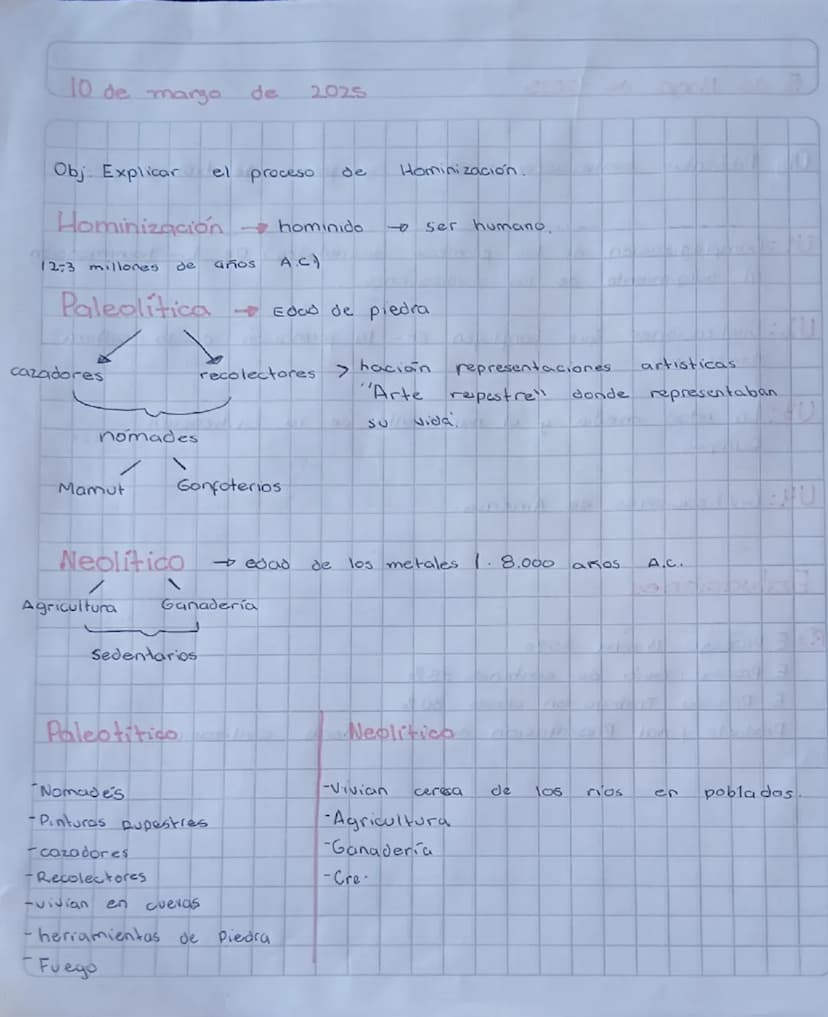 10 de marzo de 2025
Obj. Explicar el proceso de Hominización.
Hominización → hominido → ser humano.
(2-3 millones de años A.C)
Paleolítica → Edad de piedra
cazadores recolectores > hacióin representaciones artísticas
"Arte repestre" donde representaban
su vida.
nómades
Mamut Gonfoterios
Neolítico → edad de los metales 1. 8.000 años A.C.
Agricultura Ganadería
Sedentarios
Paleotítico Neolítico
-Nomades -Vivian cerca de los rios en poblados.
-Pinturas rupestres -Agricultura
-cazadores -Ganadería
-Recolectores -Cre.
-vivian en cuevas
-herramientas de Piedra
-Fuego